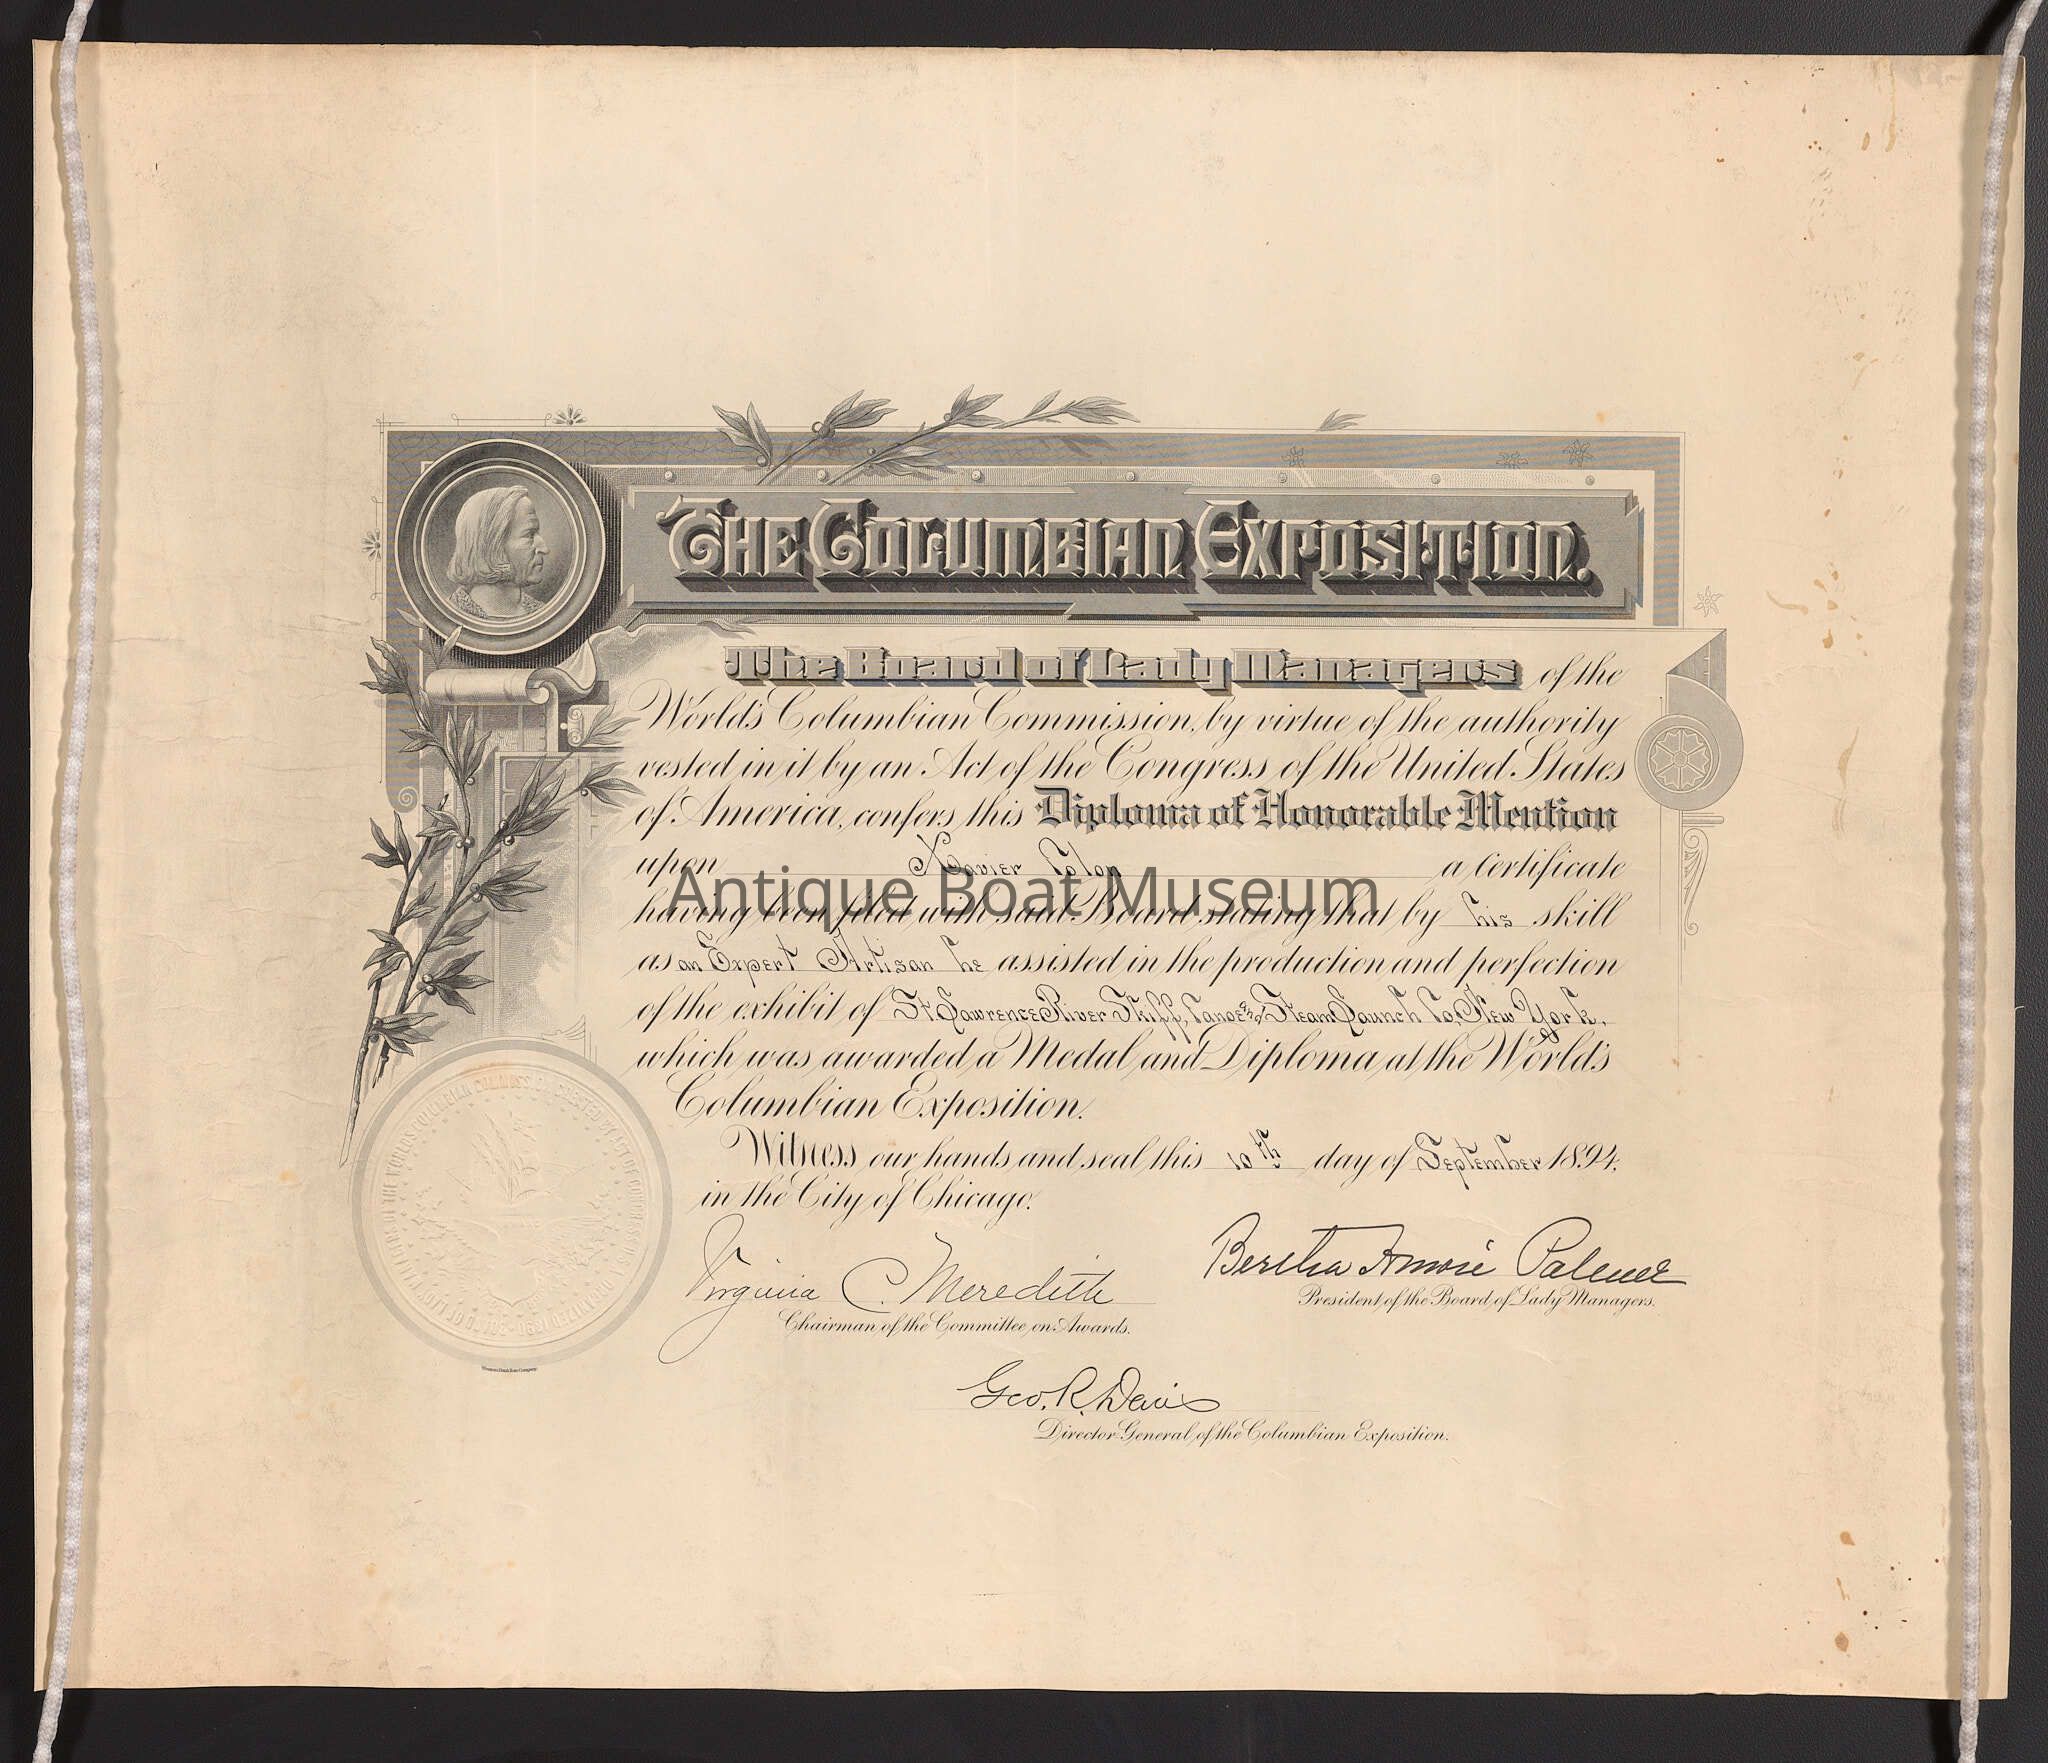 THE COLUMBIAN EXPOSITION.
The Board of Lady Managers of the
World's Columbian Commission, by virtue of the authority
vested in it by an Act of the Congress of the United States
of America, confers this Diploma of Honorable Mention
upon Xavier Colon a certificate
Antique Boat Museum
having been filed with said Board stating that by his skill
as an Expert Artisan he assisted in the production and perfection
of the exhibit of St. Lawrence River Skiff, Canoe & Steam Launch Co., New York.
which was awarded a Medal and Diploma at the World's
Columbian Exposition.
Witness our hands and seal this 10th day of September 1894.
in the City of Chicago.
Virginia C. Meredith
Chairman of the Committee on Awards.
Bertha Honoré Palmer
President of the Board of Lady Managers.
Geo. R. Davis
Director-General of the Columbian Exposition.